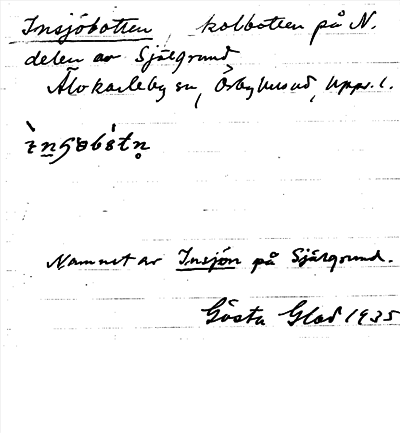 Insjöbotten, kolbotten på N.
delen av Själgrund
Älvkarleby sn, Örbyhus hd, Upps. l.
Namnet av Insjön på Själgrund.
Gösta Glad 1935